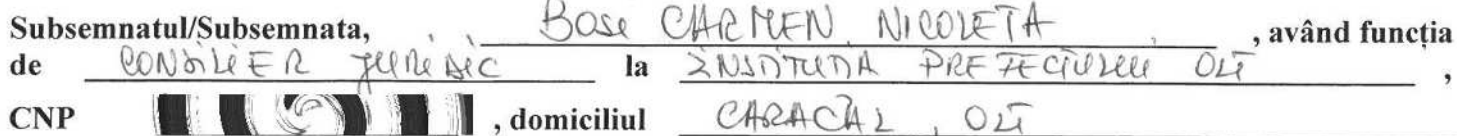 Subsemnatul/Subsemnata, Bose CARMEN NICOLETA, având funcția
de CONSILIER JURIDIC la INSTITUTIA PREFECTULUI OLT,
CNP , domiciliul CARACAL, OLT